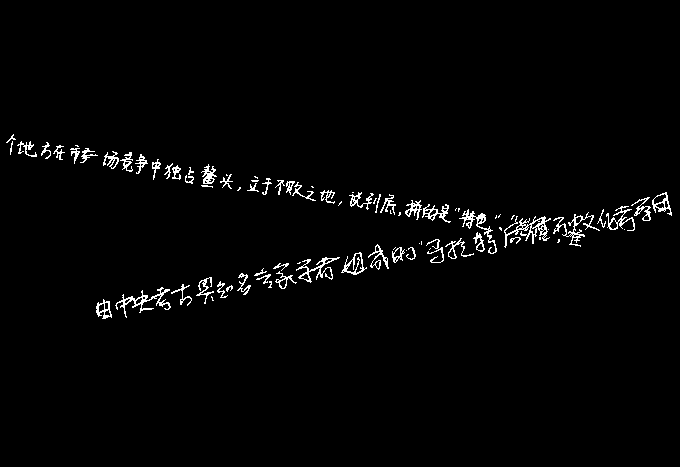 个地方在市场竞争中独占鳌头,立于不败之地,说到底,拼的是“特色”
由中央考古界知名专家学者组成的马拉特 文化考学团